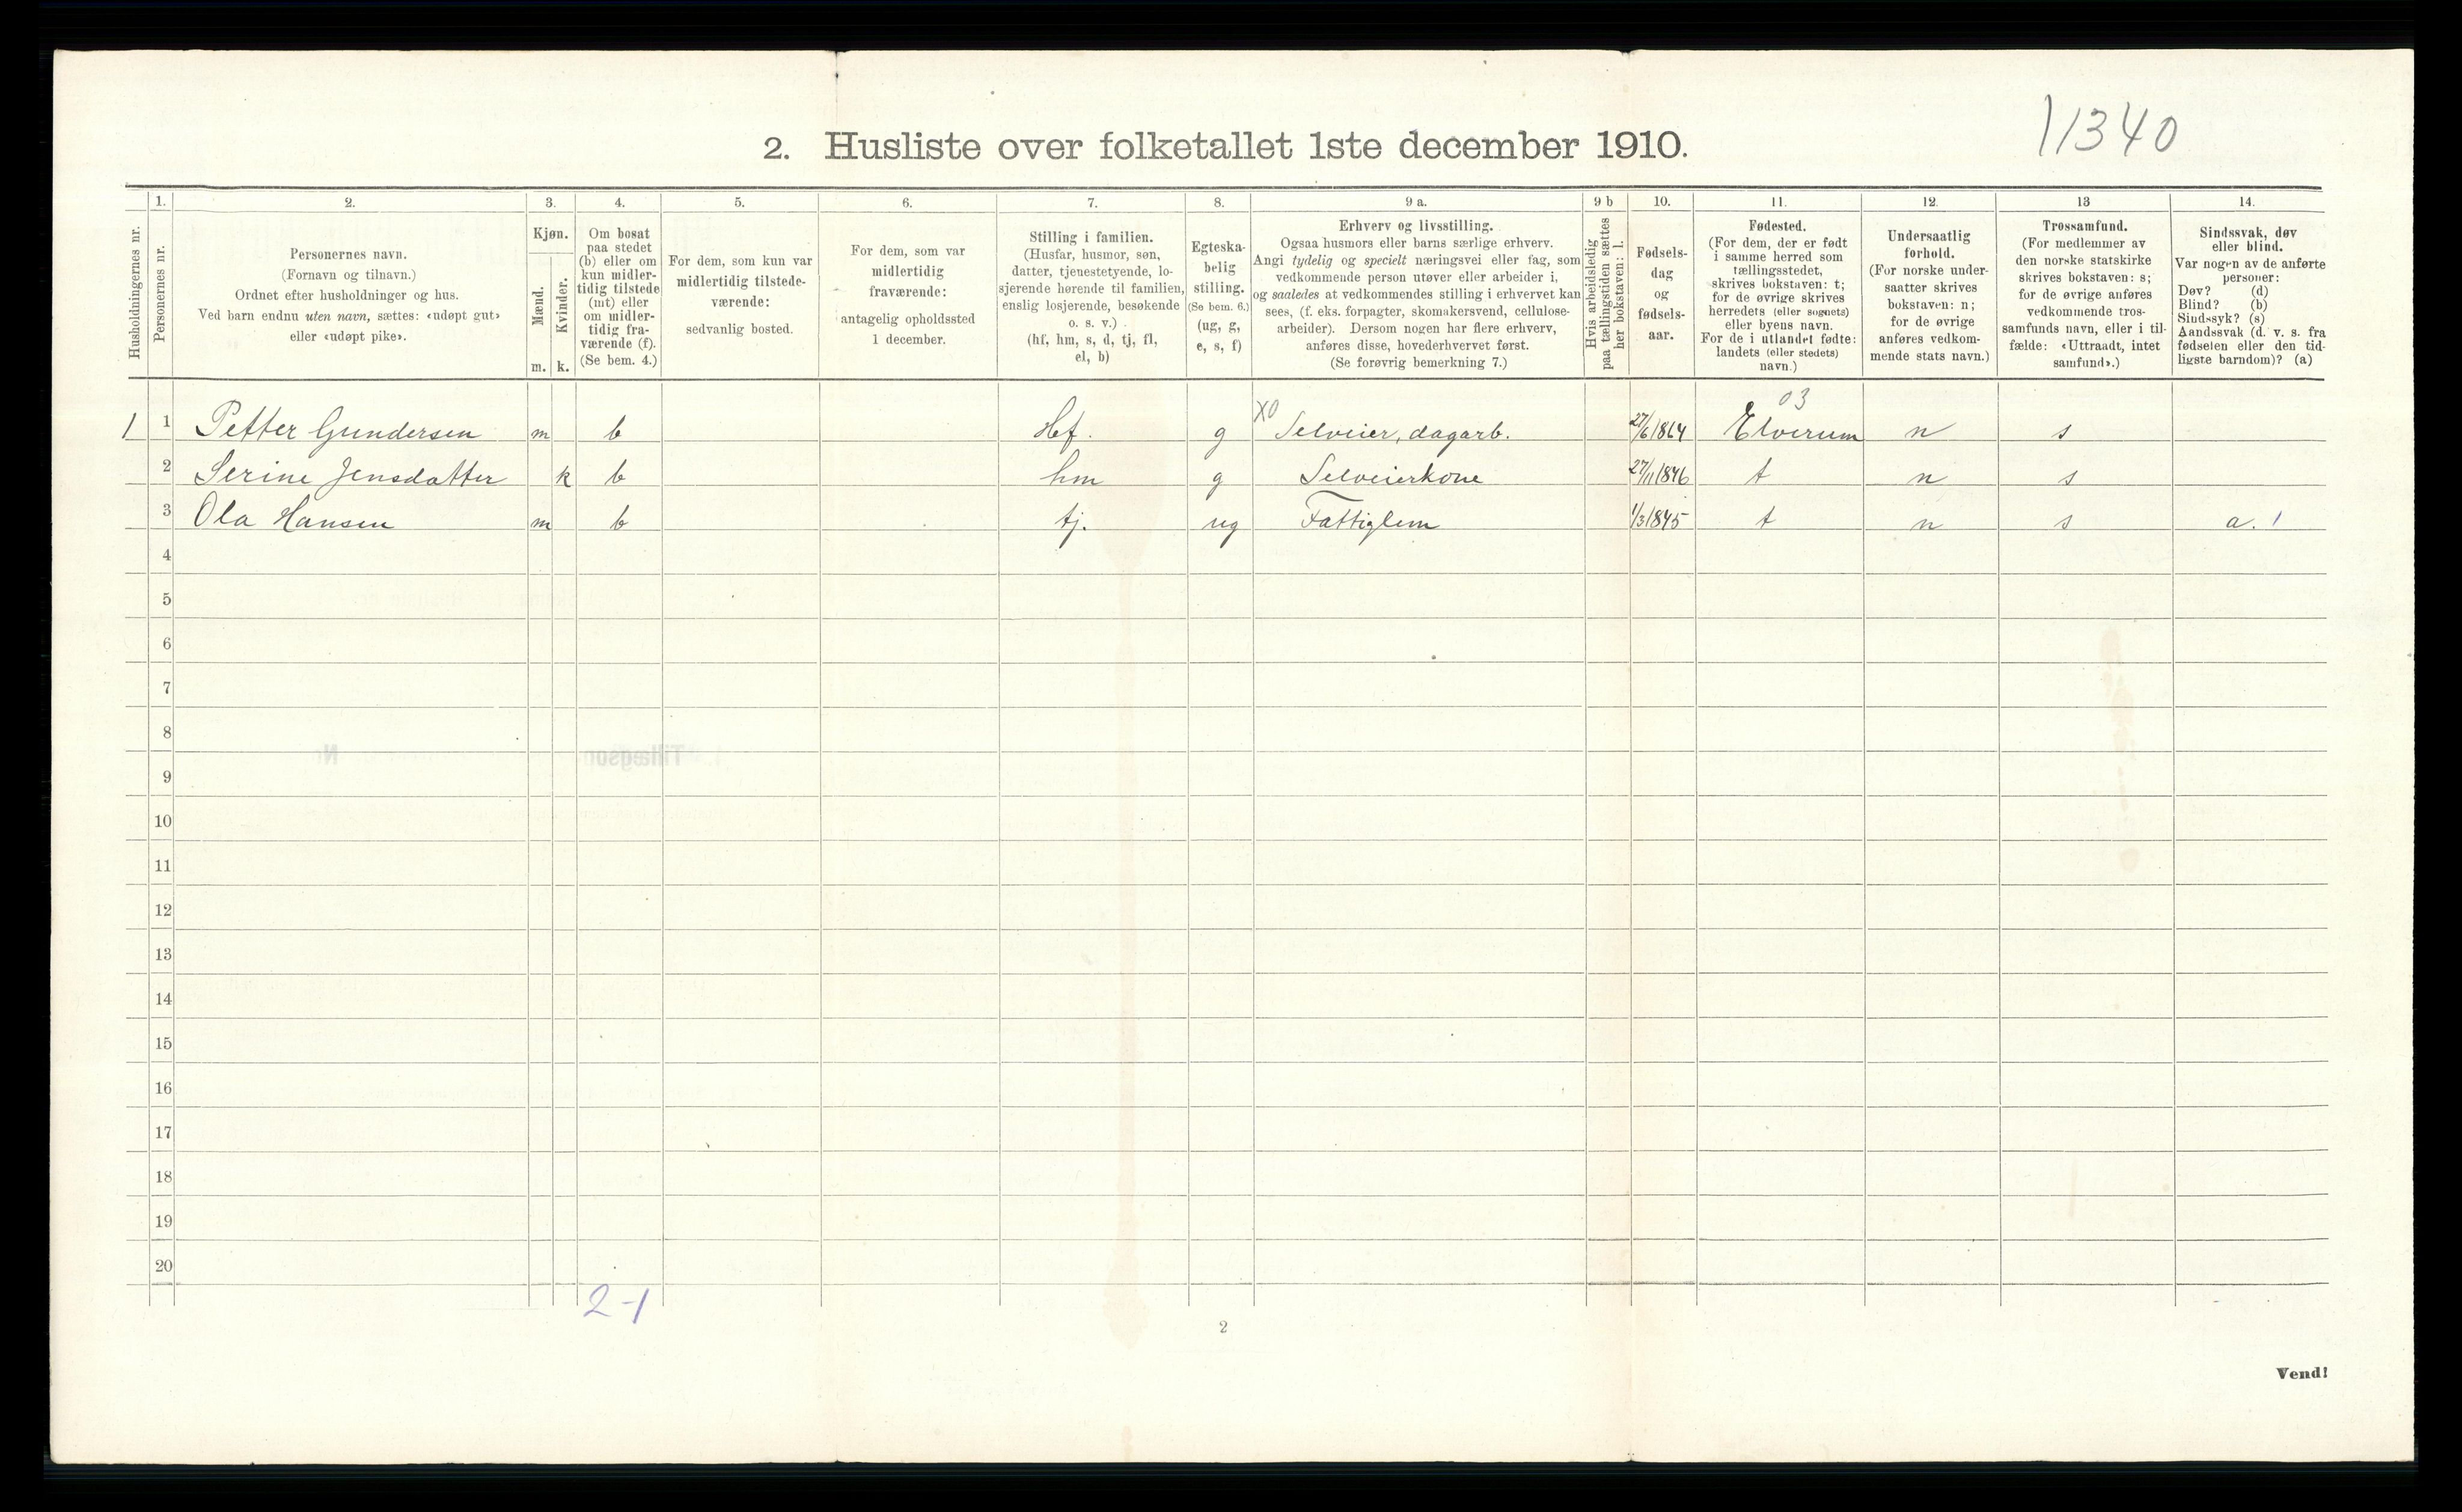 11340
2. Husliste over folketallet 1ste december 1910.
Husholdningernes nr.
1.
Personernes nr.
2.
Personernes navn.
(Fornavn og tilnavn.)
Ordnet efter husholdninger og hus.
Ved barn endnu uten navn, sættes: «udøpt gut»
eller «udøpt pike».
3.
Kjøn.
Mænd.
Kvinder.
m. k.
4.
Om bosat
paa stedet
(b) eller om
kun midler-
tidig tilstede
(mt) eller
om midler-
tidig fra-
værende (f).
(Se bem. 4.)
5.
For dem, som kun var
midlertidig tilstede-
værende:
sedvanlig bosted.
6.
For dem, som var
midlertidig
fraværende:
antagelig opholdssted
1 december.
7.
Stilling i familien.
(Husfar, husmor, søn,
datter, tjenestetyende, lo-
sjerende hørende til familien,
enslig losjerende, besøkende
o. s. v.)
(hf, hm, s, d, tj, fl,
el, b)
8.
Egteska-
belig
stilling.
(Se bem. 6.)
(ug, g,
e, s, f)
9 a.
Erhverv og livsstilling.
Ogsaa husmors eller barns særlige erhverv.
Angi tydelig og specielt næringsvei eller fag, som
vedkommende person utøver eller arbeider i,
og saaledes at vedkommendes stilling i erhvervet kan
sees, (f. eks. forpagter, skomakersvend, cellulose-
arbeider). Dersom nogen har flere erhverv,
anføres disse, hovederhvervet først.
(Se forøvrig bemerkning 7.)
9 b
Hvis arbeidsledig
paa tællingstiden sættes
her bokstaven: l.
10.
Fødsels-
dag
og
fødsels-
aar.
11.
Fødested.
(For dem, der er født
i samme herred som
tællingsstedet,
skrives bokstaven: t;
for de øvrige skrives
herredets (eller sognets)
eller byens navn.
For de i utlandet fødte:
landets (eller stedets)
navn.)
12.
Undersaatlig
forhold.
(For norske under-
saatter skrives
bokstaven: n;
for de øvrige
anføres vedkom-
mende stats navn.)
13
Trossamfund.
(For medlemmer av
den norske statskirke
skrives bokstaven: s;
for de øvrige anføres
vedkommende tros-
samfunds navn, eller i til-
fælde: «Uttraadt, intet
samfund».)
14.
Sindssvak, døv
eller blind.
Var nogen av de anførte
personer:
Døv? (d)
Blind? (b)
Sindssyk? (s)
Aandssvak (d. v. s. fra
fødselen eller den tid-
ligste barndom)? (a)
03
1 1 Petter Gundersen m b Hf. g X0 Selveier, dagarb. 27/6 1864 Elverum n s
2 Serine Jensdatter k b hm g Selveierkone 27/11 1846 t n s
3 Ola Hansen m b tj. ug Fattiglem 1/3 1845 t n s a. 1
4
5
6
7
8
9
10
11
12
13
14
15
16
17
18
19
20
2-1
2
Vend!